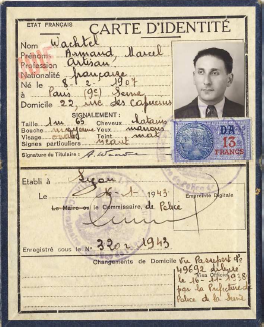 ETAT FRANÇAIS
CARTE D'IDENTITÉ
Nom Wachtel
Prénom Armand, Marcel
Profession Artisan
Nationalité française
Né le 8-2-1907
à Paris (9e) Seine
Domicile 22, rue des Capucins
SIGNALEMENT:
Taille 1m 65 Cheveux chatains
Bouche moyenne Yeux marrons
Visage ovale Teint mat
Signes particuliers néant
Signature du Titulaire:
DA
13
FRANCS
Etabli à Lyon
le 16-1-1943
Le Maire ou le Commissaire, de Police
Empreinte Digitale
Enregistré sous le N° 320 1943
Changements de Domicile
Vu Passeport N°
49692 délivré
le 16-11-
par la Préfecture de
Police de la Seine